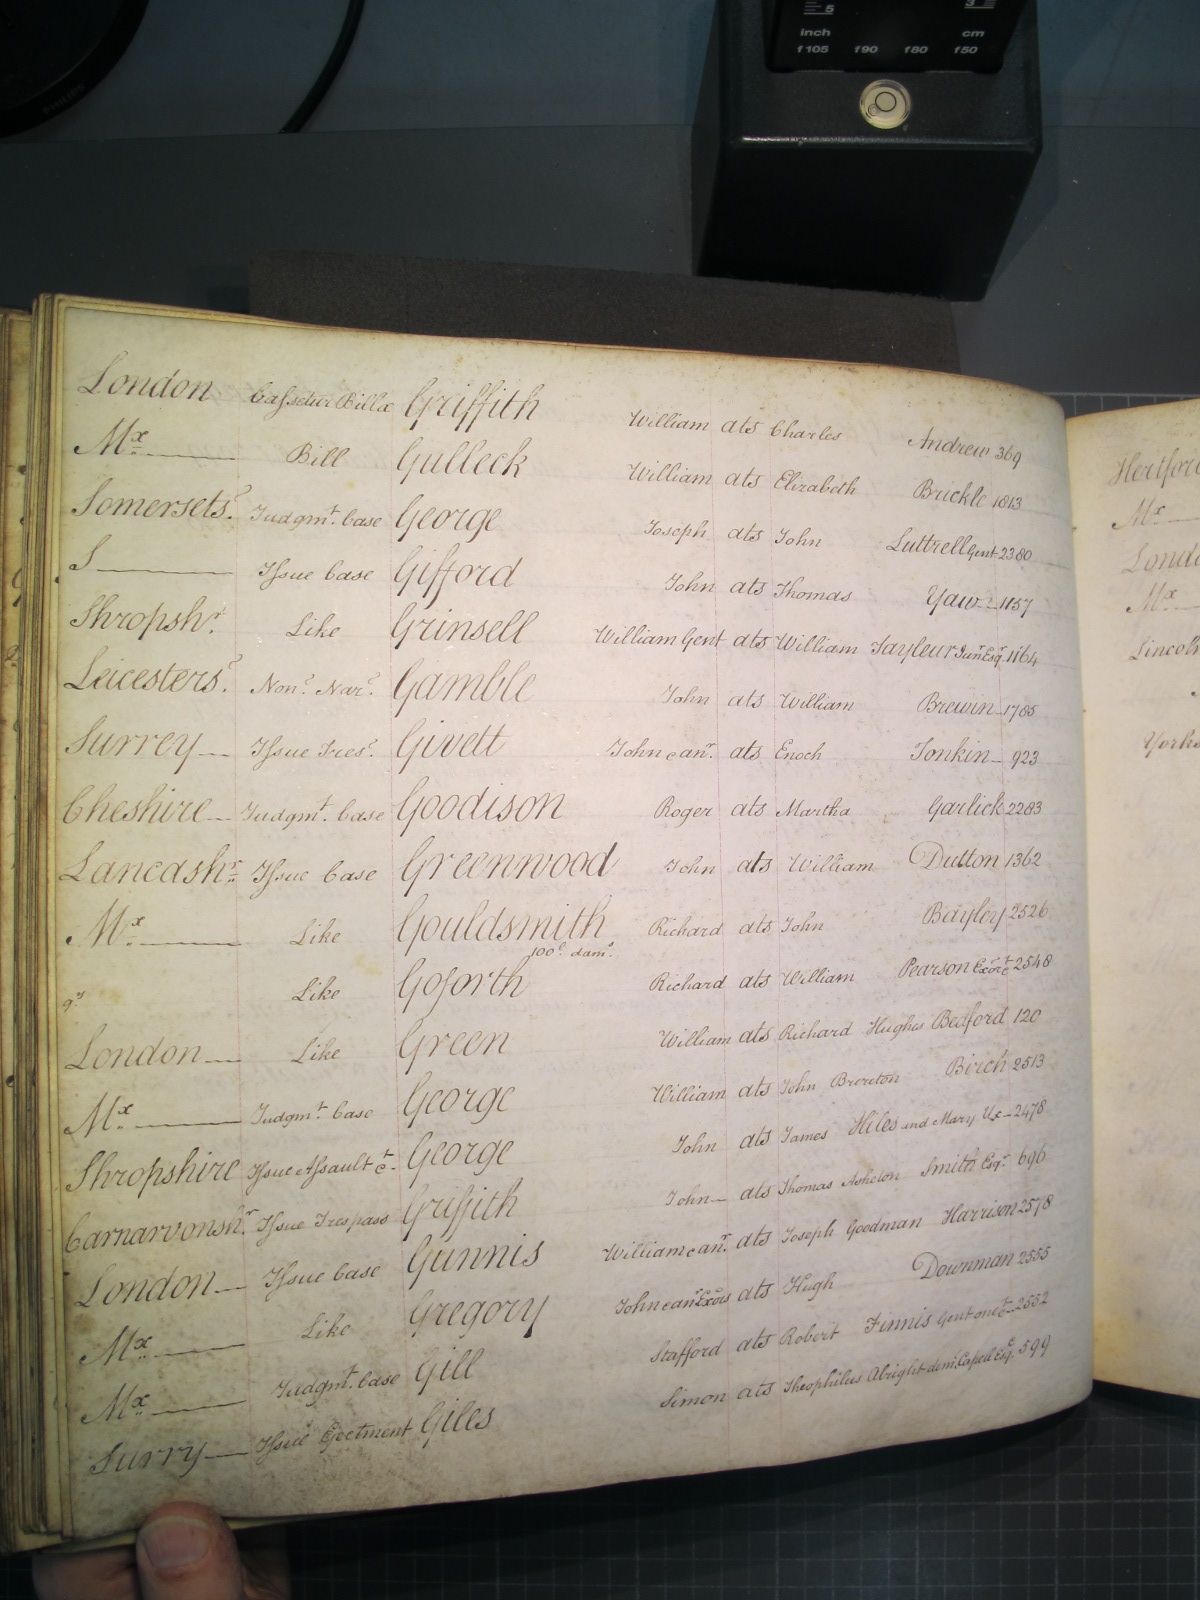 5 3
inch cm
f105 f90 f80 f50
PHILIPS
London Cassetur Billa Griffith William ats Charles Andrew 369
Mx. Bill Gulleck William ats Elizabeth Brickle 1813
Somersets. Judgmt. Case George Joseph ats John Luttrell Gent 2380
S Issue Case Gifford John ats Thomas Yaw 1157
Shropshr. Like Grinsell William Gent ats William Tayleur Junr Esqr. 1164
Leicesters. Non. Nar. Gamble John ats William Brewin 1785
Surrey Issue Tres. Givett John & anr. ats Enoch Tonkin 923
Cheshire Judgmt. Case Goodison Roger ats Martha Garlick 2283
Lancashr. Issue Case Greenwood John ats William Dutton 1362
Mx. Like Gouldsmith Richard ats John Bayley 2526
100£. dams.
Like Goforth Richard ats William Pearson Exor &c 2548
London Like Green William ats Richard Hughes Bedford 120
Mx. Judgmt. Case George William ats John Brereton Birch 2513
Shropshire Issue Assault &c. George John ats James Hiles and Mary Ux 2478
Carnarvonshr. Issue Trespass Griffith John ats Thomas Asheton Smith Esqr. 696
London Issue Case Gunnis William & anr. ats Joseph Goodman Harrison 2578
Mx. Like Gregory John & anr Exors ats Hugh Downman 2555
Mx. Judgmt. Case Gill Stafford ats Robert Finnis Gent one &c 2552
Surry Issue Ejectment Giles Simon ats Theophilus Abright dem. Capell Esq. 599
Hertford
Mx.
Londo
Mx.
Lincoln
Yorks